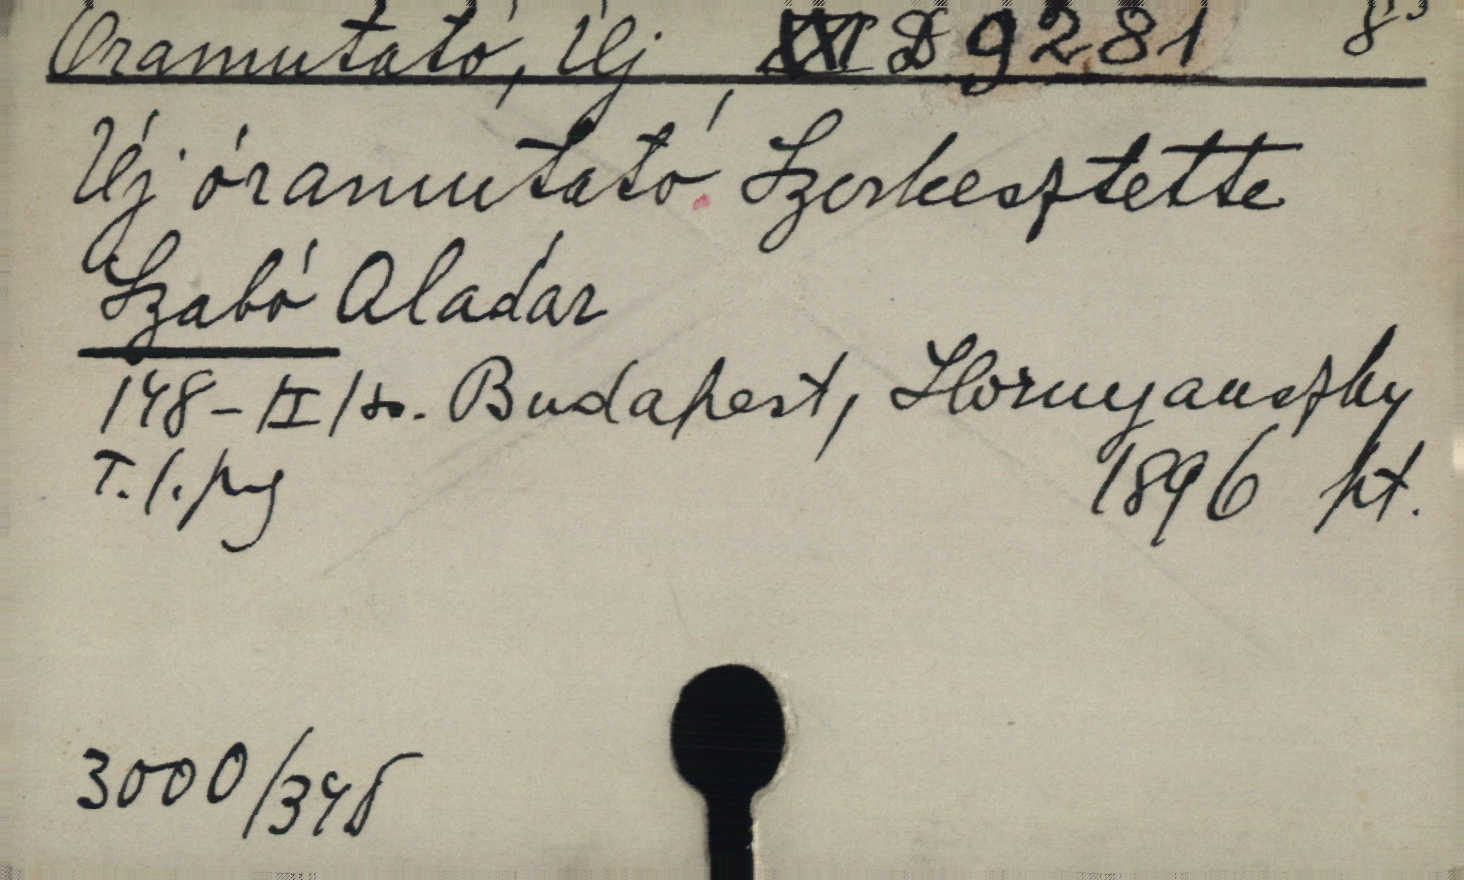 Óramutató, Új D 9281 8°
Új óramutató. Szerkesztette
Szabó Aladár
148-II Budapest, Hornyánszky
T. 1. png 1896 kt.
3000/348